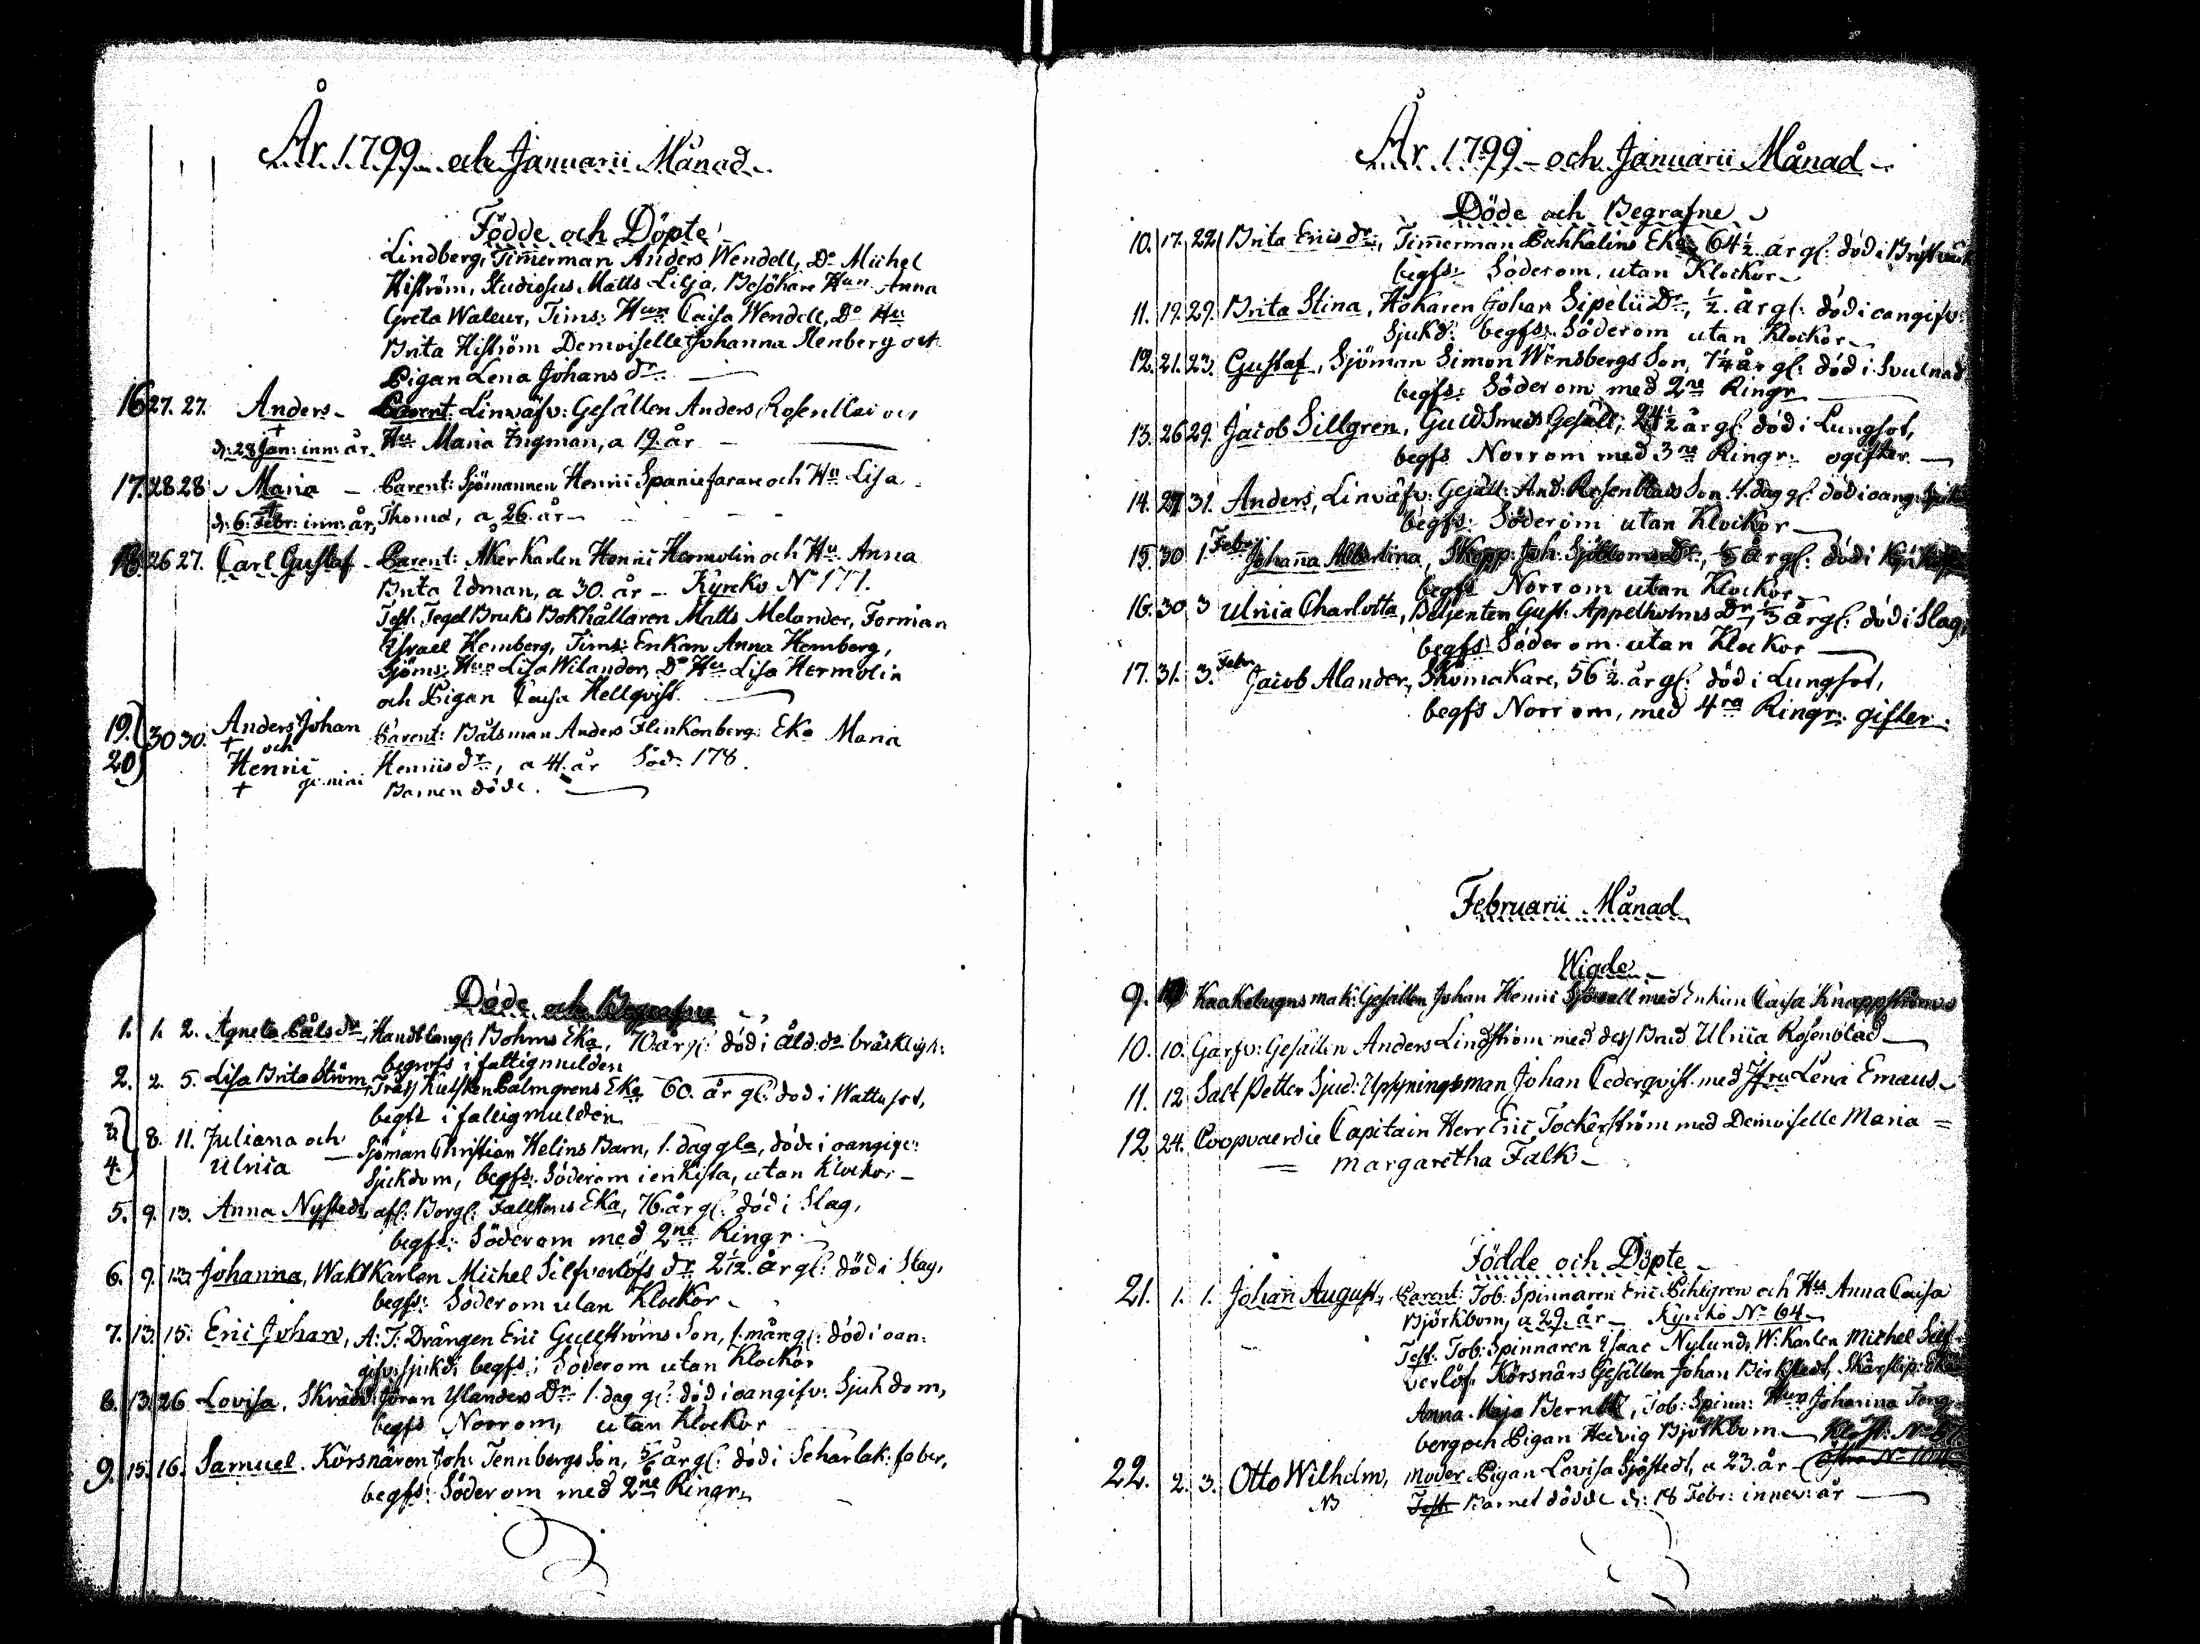 År 1799 och Januarii Månad
Födde och Döpte
Lindberg, Timerman Anders Wendell, Do Michel
Hiström, Studiosus Matts Lilja, Besökare Hun Anna
Greta Waleur, Tims: Hun Caisa Wendell, Do Hu
Brita Hiström Demoiselle Johanna Stenberg och
Pigan Lena Johans dr
16 27. 27. Anders Parent: Linväfv: Gesällen Anders Rosenblai och
+
d: 28 Jan: inn: år. Hu Maria Ingman, a 19 år
17. 28 28 Maria Parent: Sjömannen Henric Spaniefarare och Hu Lisa
d: 6: Febr: inn: år, Thoma, a 26 år
18. 26 27. Carl Gustaf Parent: Åkerkarlen Henric Hermolin och Hu Anna
Brita Udman, a 30. år Kyrcko No 171.
Test: Tegel Bruks Bokhållaren Matts Melander, Forman
Israel Hemberg, Tims: Enkan Anna Hemberg,
Sjöms: Hun Lisa Wilander, Do Hu Lisa Hermolin
och Pigan Caisa Hellqvist
19. 20 30 30. Anders Johan Parent: Båtsman Anders Flinkenberg Eka Maria
+ och
Henric gemini Henricsdr, a 41. år Söd: 178.
+ Barnen döde.
Döde och Begrafne
1. 1. 2. Agneta Påls dr, Handtlang: Bohms Eka, 70. år gl: död i Åld:do bräckligh:
begrofs i fattigmulden
2. 2. 5. Lisa Brita Ström, Kusken Palmgrens Eka 60. år gl: död i Wattusot,
begfs i fattigmulden
3 4. 8. 11. Juliana och Sjöman Christian Helins Barn, 1. dag gla, döde i oangifv:
Ulrica Sjukdom, begfs: Söderom i en kista, utan Klockor
5. 9. 13. Anna Nystedt, afl: Borg: Fallströms Eka, 76. år gl: död i Slag,
begfs: Söderom med 2ne Ringr
6. 9. 13. Johanna, WaktKarlen Michel Silfverlöfs dr 2 1/12. år gl: död i Slag,
begfs: Söderom utan Klockor
7. 13. 15. Eric Johan, A: T: Drängen Eric Gullströms Son, 1. mån gl: död i oan:
gifv: sjukd: begfs: Söderom utan Klockor
8. 13. 26 Lovisa, Skrädd: Göran Ylanders Dr 1. dag gl: död i oangifv: Sjukdom,
begfs Norrom, utan Klockor
9. 15. 16. Samuel. Körsnären Joh: Tennbergs Son, 5/6 år gl: död i Scharlak: feber,
begfs: Söderom med 2ne Ringr
År 1799 och Januarii Månad
Döde och Begrafne
10. 17. 22 Brita Erics dr, Timerman Pahkalins Eka 64 1/2 år gl: död i
begfs: Söderom, utan Klockor
11. 19. 29. Brita Stina, Hökaren Johan Sipelii Dr, 1/2. år gl: död i oangifv:
Sjukd: begfs: Söderom utan Klockor
12. 21. 23. Gustaf, Sjöman Simon Wensbergs Son, 7/4 år gl: död i Svulnad
begfs: Söderom med 2ne Ringr
13. 26 29. Jacob Sillgren, Guldsmeds Gesäll, 24 1/2 år gl: död i Lungsot,
begfs Norrom med 3ne Ringr: ogifter
14. 29 31. Anders, Linväfv: Gesäll: And: Rosenblads Son 4. dag gl: död i oang: Sjukd
begfs: Söderom utan Klockor
15. 30 1. Febr Johanna Albertina, Skepp: Joh: Sjöbloms Dr, år gl: död i
begfs Norrom utan Klockor
16. 30. 3 Ulrica Charlotta, Betjenten Gust: Appelholms Dr, år gl: död i Slag,
begfs: Söderom utan Klockor
17. 31. 3. Febr Jacob Alander, Skomakare, 56 1/2. år gl: död i Lungsot,
begfs Norrom, med 4ra Ringr: gifter.
Februarii Månad
Wigde
9. Kaakelugnsmak: Gesällen Johan Henric Sjövall med Enkan Caisa Knappströms
10. 10. Garfv: Gesällen Anders Lindström med dess Brud Ulrica Rosenblad
11. 12 Salt Petter Sjud: Uppsyningsman Johan Cederqvist med Jfru Lena Emaus
12 24. Coopvaerdie Capitain Herr Eric Tockerström med Demoiselle Maria =
= Margaretha Falk
Födde och Döpte
21. 1. 1. Johan August, Parent: Tob: Spinnaren Eric Pehlgren och Hu Anna Caisa
Björkbom, a 29. år Kyrcko No 64
Test: Tob: Spinnaren Isaac Nylund, W: Karlen Michel Silf
verlöf, Körsnärs Gesällen Johan Berkstedt, Skärslip:
Anna Maja Berndtz, Tob: Spinn: Hun Johanna Teng
berg och Pigan Hedvig Björkbom.
22. 2. 3. Otto Wilhelm, Moder Pigan Lovisa Sjöstedt, a 23. år
NB Test Barnet dödde d: 18 Febr: innev: år